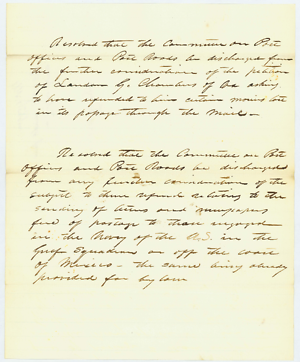 Resolved that the Committee on Post
Offices and Post Roads be discharged from
the further consideration of the petition
of Landon G. Chambers of Va asking
to have refunded to him certain monies lost
in its passage through the Mail –
Resolved that the Committee on Post
Offices and Post Roads be discharged
from any further consideration of the
subject to them referred relating to the
sending of letters and newspapers
free of postage to those engaged
in the Navy of the U.S. in the
Gulf Squadron or off the coast
of Mexico – the same being already
provided for by law